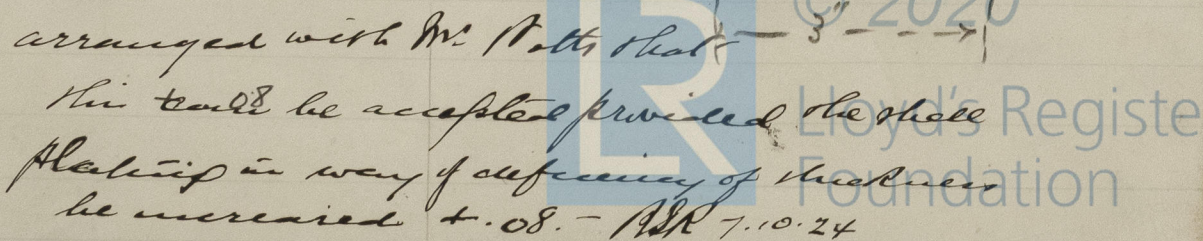 arranged with Mr. Potts that
← 3" - - - →
© 2020
this be accepted provided the shell
plating in way of deficiency of thickness
be increased +.08. – 7.10.24
Lloyd's Registe
Foundation
LR